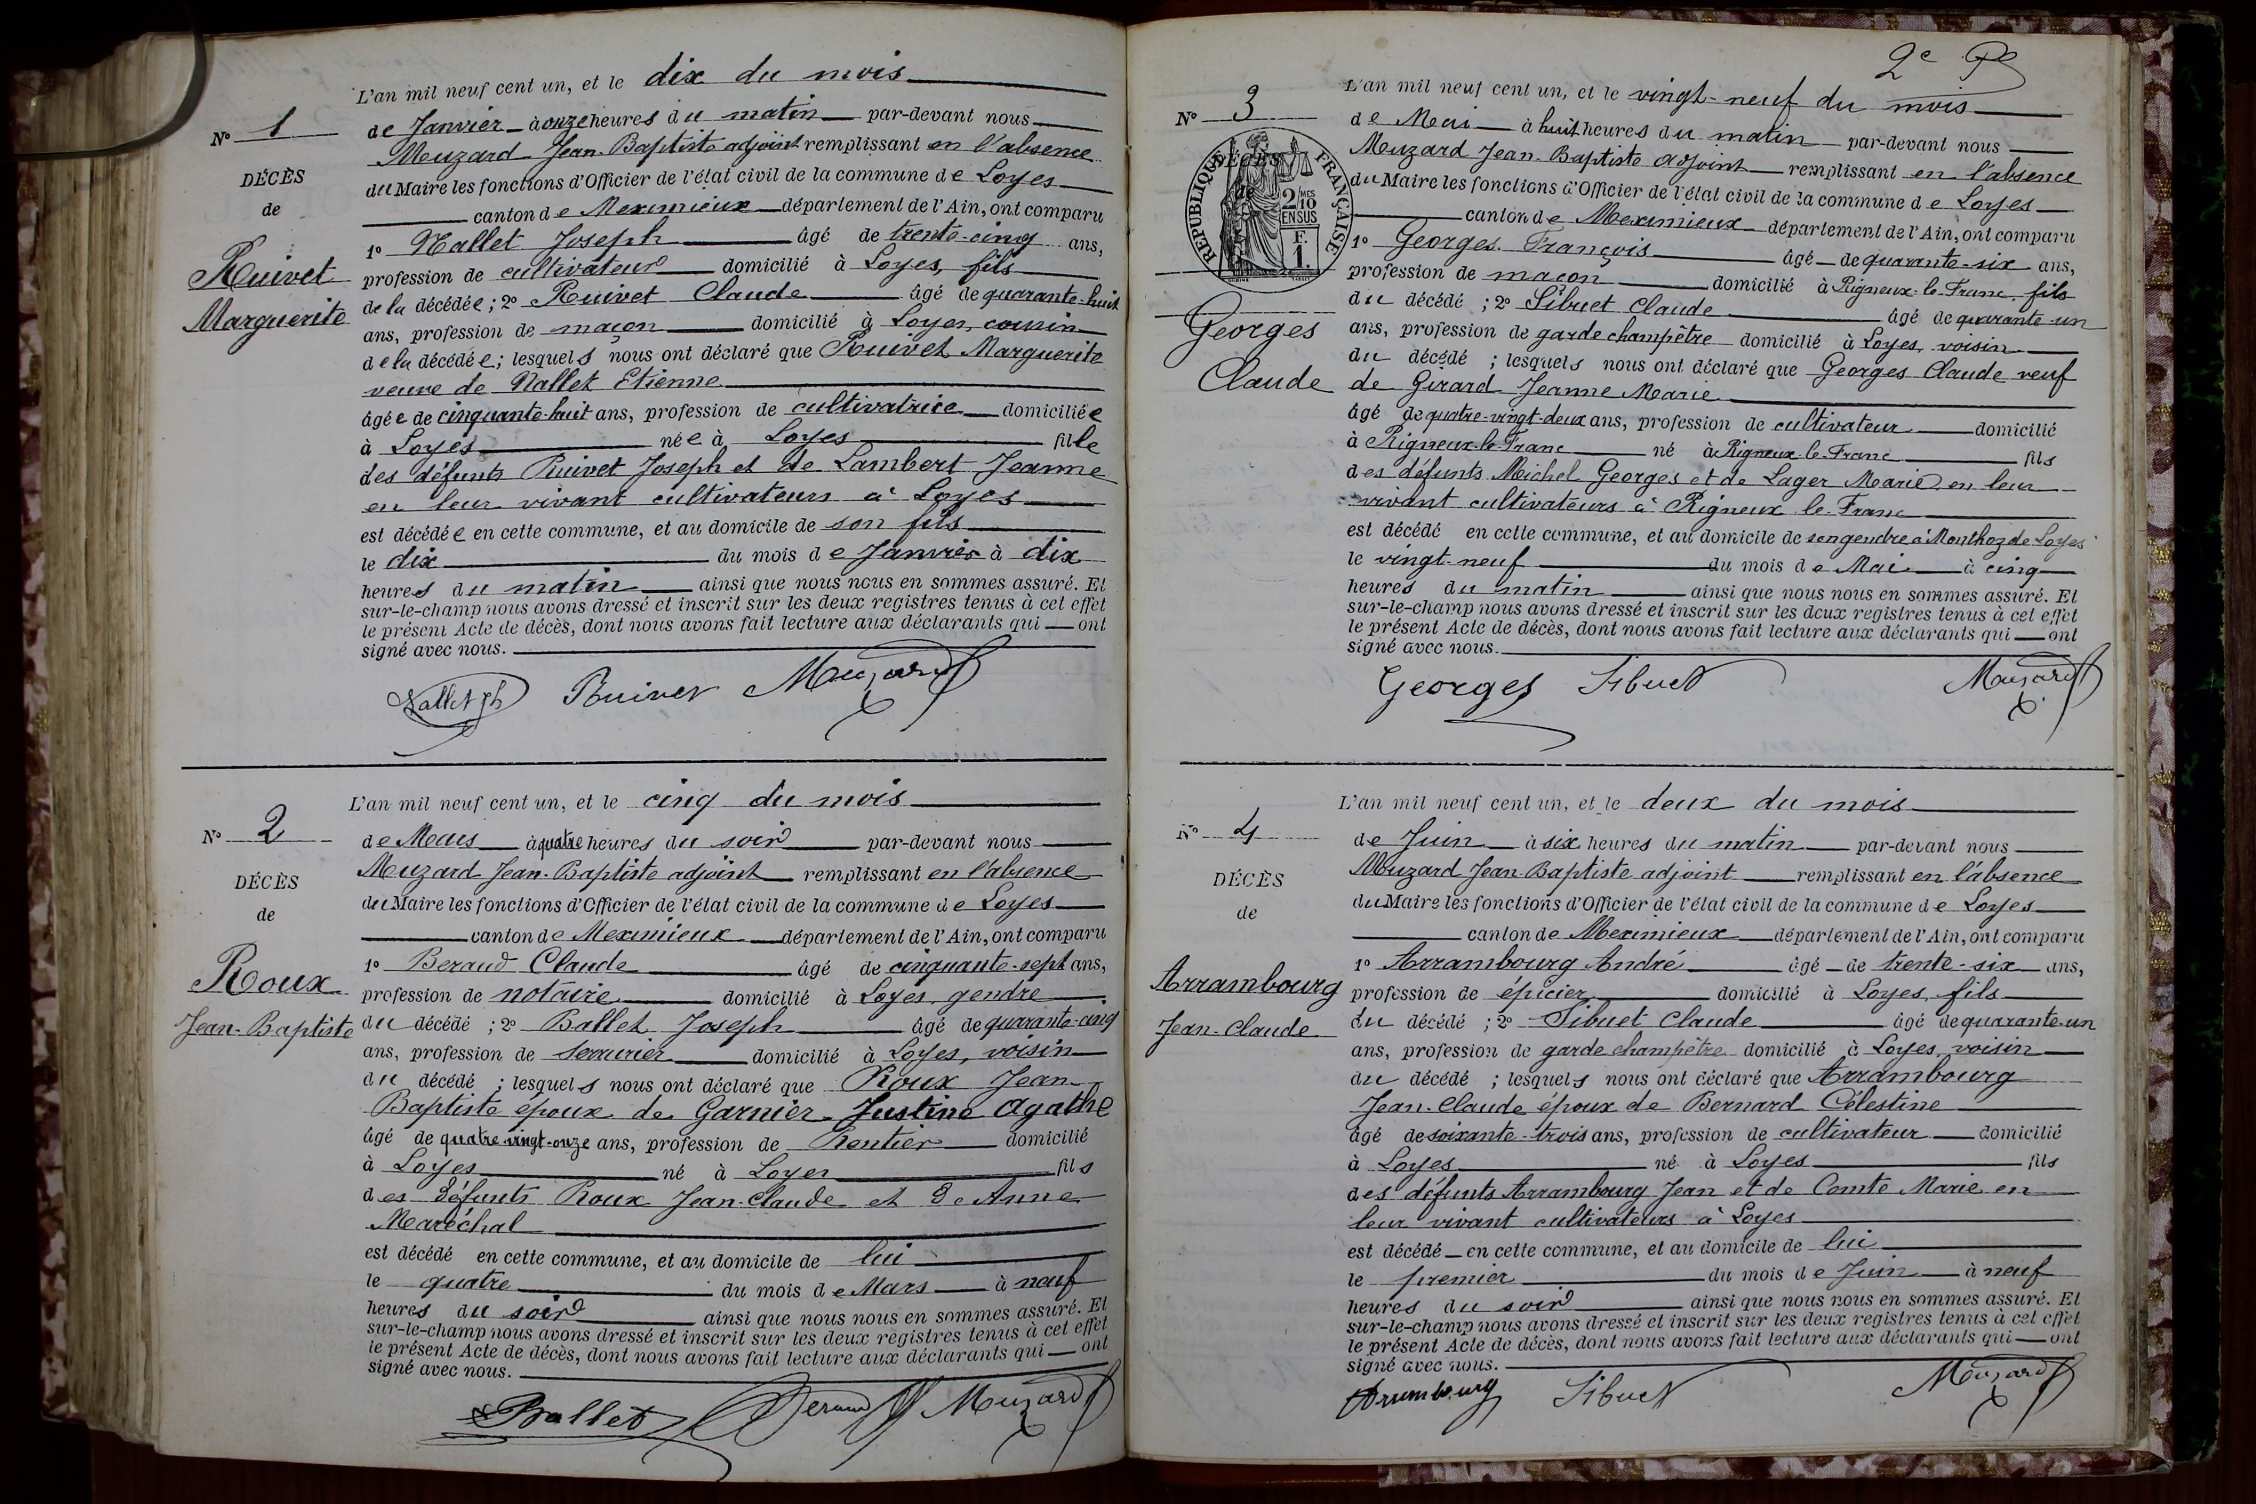 L'an mil neuf cent un, et le dix du mois
N° 1
de Janvier à onze heures du matin par-devant nous
Muzard Jean-Baptiste adjoint remplissant en l'absence
DÉCÈS
du Maire les fonctions d'Officier de l'état civil de la commune de Loyes
de
canton de Meximieux département de l'Ain, ont comparu
1° Nallet Joseph âgé de trente-cinq ans,
Ruivet
profession de cultivateur domicilié à Loyes, fils
Marguerite
de la décédée; 2° Ruivet Claude âgé de quarante-huit
ans, profession de maçon domicilié à Loyes, cousin
de la décédée; lesquels nous ont déclaré que Ruivet Marguerite
veuve de Nallet Etienne
âgée de cinquante-huit ans, profession de cultivatrice domiciliée
à Loyes née à Loyes fille
des défunts Ruivet Joseph et de Lambert Jeanne
en leur vivant cultivateurs à Loyes
est décédée en cette commune, et au domicile de son fils
le dix du mois de Janvier à dix
heures du matin ainsi que nous nous en sommes assuré. Et
sur-le-champ nous avons dressé et inscrit sur les deux registres tenus à cet effet
le présent Acte de décès, dont nous avons fait lecture aux déclarants qui ont
signé avec nous.
Nallet Jh Ruivet Muzard
L'an mil neuf cent un, et le cinq du mois
N° 2
de Mars à quatre heures du soir par-devant nous
Muzard Jean-Baptiste adjoint remplissant en l'absence
DÉCÈS
du Maire les fonctions d'Officier de l'état civil de la commune de Loyes
de
canton de Meximieux département de l'Ain, ont comparu
1° Beraud Claude âgé de cinquante-sept ans,
Roux
profession de notaire domicilié à Loyes, gendre
Jean-Baptiste
du décédé; 2° Ballet Joseph âgé de quarante-cinq
ans, profession de serrurier domicilié à Loyes, voisin
du décédé; lesquels nous ont déclaré que Roux Jean-
Baptiste époux de Garnier Justine Agathe
âgé de quatre-vingt-onze ans, profession de Rentier domicilié
à Loyes né à Loyes fils
des défunts Roux Jean-Claude et de Anne
Maréchal
est décédé en cette commune, et au domicile de lui
le quatre du mois de Mars à neuf
heures du soir ainsi que nous nous en sommes assuré. Et
sur-le-champ nous avons dressé et inscrit sur les deux registres tenus à cet effet
le présent Acte de décès, dont nous avons fait lecture aux déclarants qui ont
signé avec nous.
Ballet Beraud Muzard
2e
L'an mil neuf cent un, et le vingt-neuf du mois
N° 3
de Mai à huit heures du matin par-devant nous
Muzard Jean-Baptiste adjoint remplissant en l'absence
DÉCÈS
de
RÉPUBLIQUE FRANÇAISE
2/10MES
EN SUS
F.
1.
du Maire les fonctions d'Officier de l'état civil de la commune de Loyes
canton de Meximieux département de l'Ain, ont comparu
1° Georges François âgé de quarante-six ans,
profession de maçon domicilié à Rigneux-le-Franc, fils
du décédé; 2° Sibuet Claude âgé de quarante-un
Georges
ans, profession de garde champêtre domicilié à Loyes, voisin
du décédé; lesquels nous ont déclaré que Georges Claude veuf
Claude
de Girard Jeanne Marie
âgé de quatre-vingt-deux ans, profession de cultivateur domicilié
à Rigneux-le-Franc né à Rigneux-le-Franc fils
des défunts Michel Georges et de Lager Marie en leur
vivant cultivateurs à Rigneux-le-Franc
est décédé en cette commune, et au domicile de son gendre à Monthoz de Loyes
le vingt-neuf du mois de Mai à cinq
heures du matin ainsi que nous nous en sommes assuré. Et
sur-le-champ nous avons dressé et inscrit sur les deux registres tenus à cet effet
le présent Acte de décès, dont nous avons fait lecture aux déclarants qui ont
signé avec nous.
Georges Sibuet Muzard
L'an mil neuf cent un, et le deux du mois
N° 4
de Juin à six heures du matin par-devant nous
Muzard Jean-Baptiste adjoint remplissant en l'absence
DÉCÈS
du Maire les fonctions d'Officier de l'état civil de la commune de Loyes
de
canton de Meximieux département de l'Ain, ont comparu
1° Arrambourg André âgé de trente-six ans,
Arrambourg
profession de épicier domicilié à Loyes, fils
Jean-Claude
du décédé; 2° Sibuet Claude âgé de quarante-un
ans, profession de garde champêtre domicilié à Loyes, voisin
du décédé; lesquels nous ont déclaré que Arrambourg
Jean-Claude époux de Bernard Célestine
âgé de soixante-trois ans, profession de cultivateur domicilié
à Loyes né à Loyes fils
des défunts Arrambourg Jean et de Comte Marie en
leur vivant cultivateurs à Loyes
est décédé en cette commune, et au domicile de lui
le premier du mois de Juin à neuf
heures du soir ainsi que nous nous en sommes assuré. Et
sur-le-champ nous avons dressé et inscrit sur les deux registres tenus à cet effet
le présent Acte de décès, dont nous avons fait lecture aux déclarants qui ont
signé avec nous.
Arrambourg Sibuet Muzard